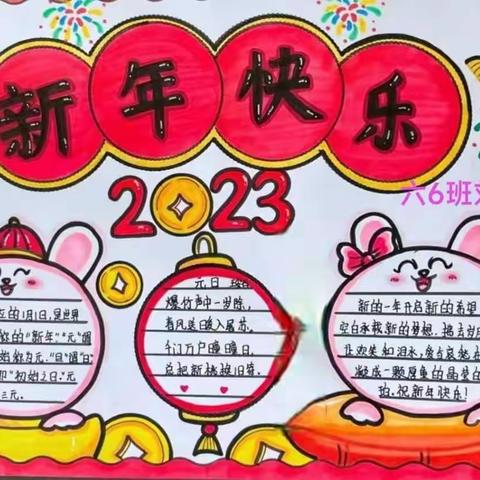 新年快乐
2023
六6班
的1月1日,是世界
的"新年""元"谓
始数为元,"旦"谓"日"
即"初始之日",元
三元.
元日
爆竹声中一岁除,
春风送暖入屠苏.
千门万户瞳瞳日,
总把新桃换旧符.
新的一年开启新的希望
空白承载新的梦想.拂去岁月
让欢笑和泪水.爱与哀愁
凝成一颗厚重的晶莹的
班.祝新年快乐!